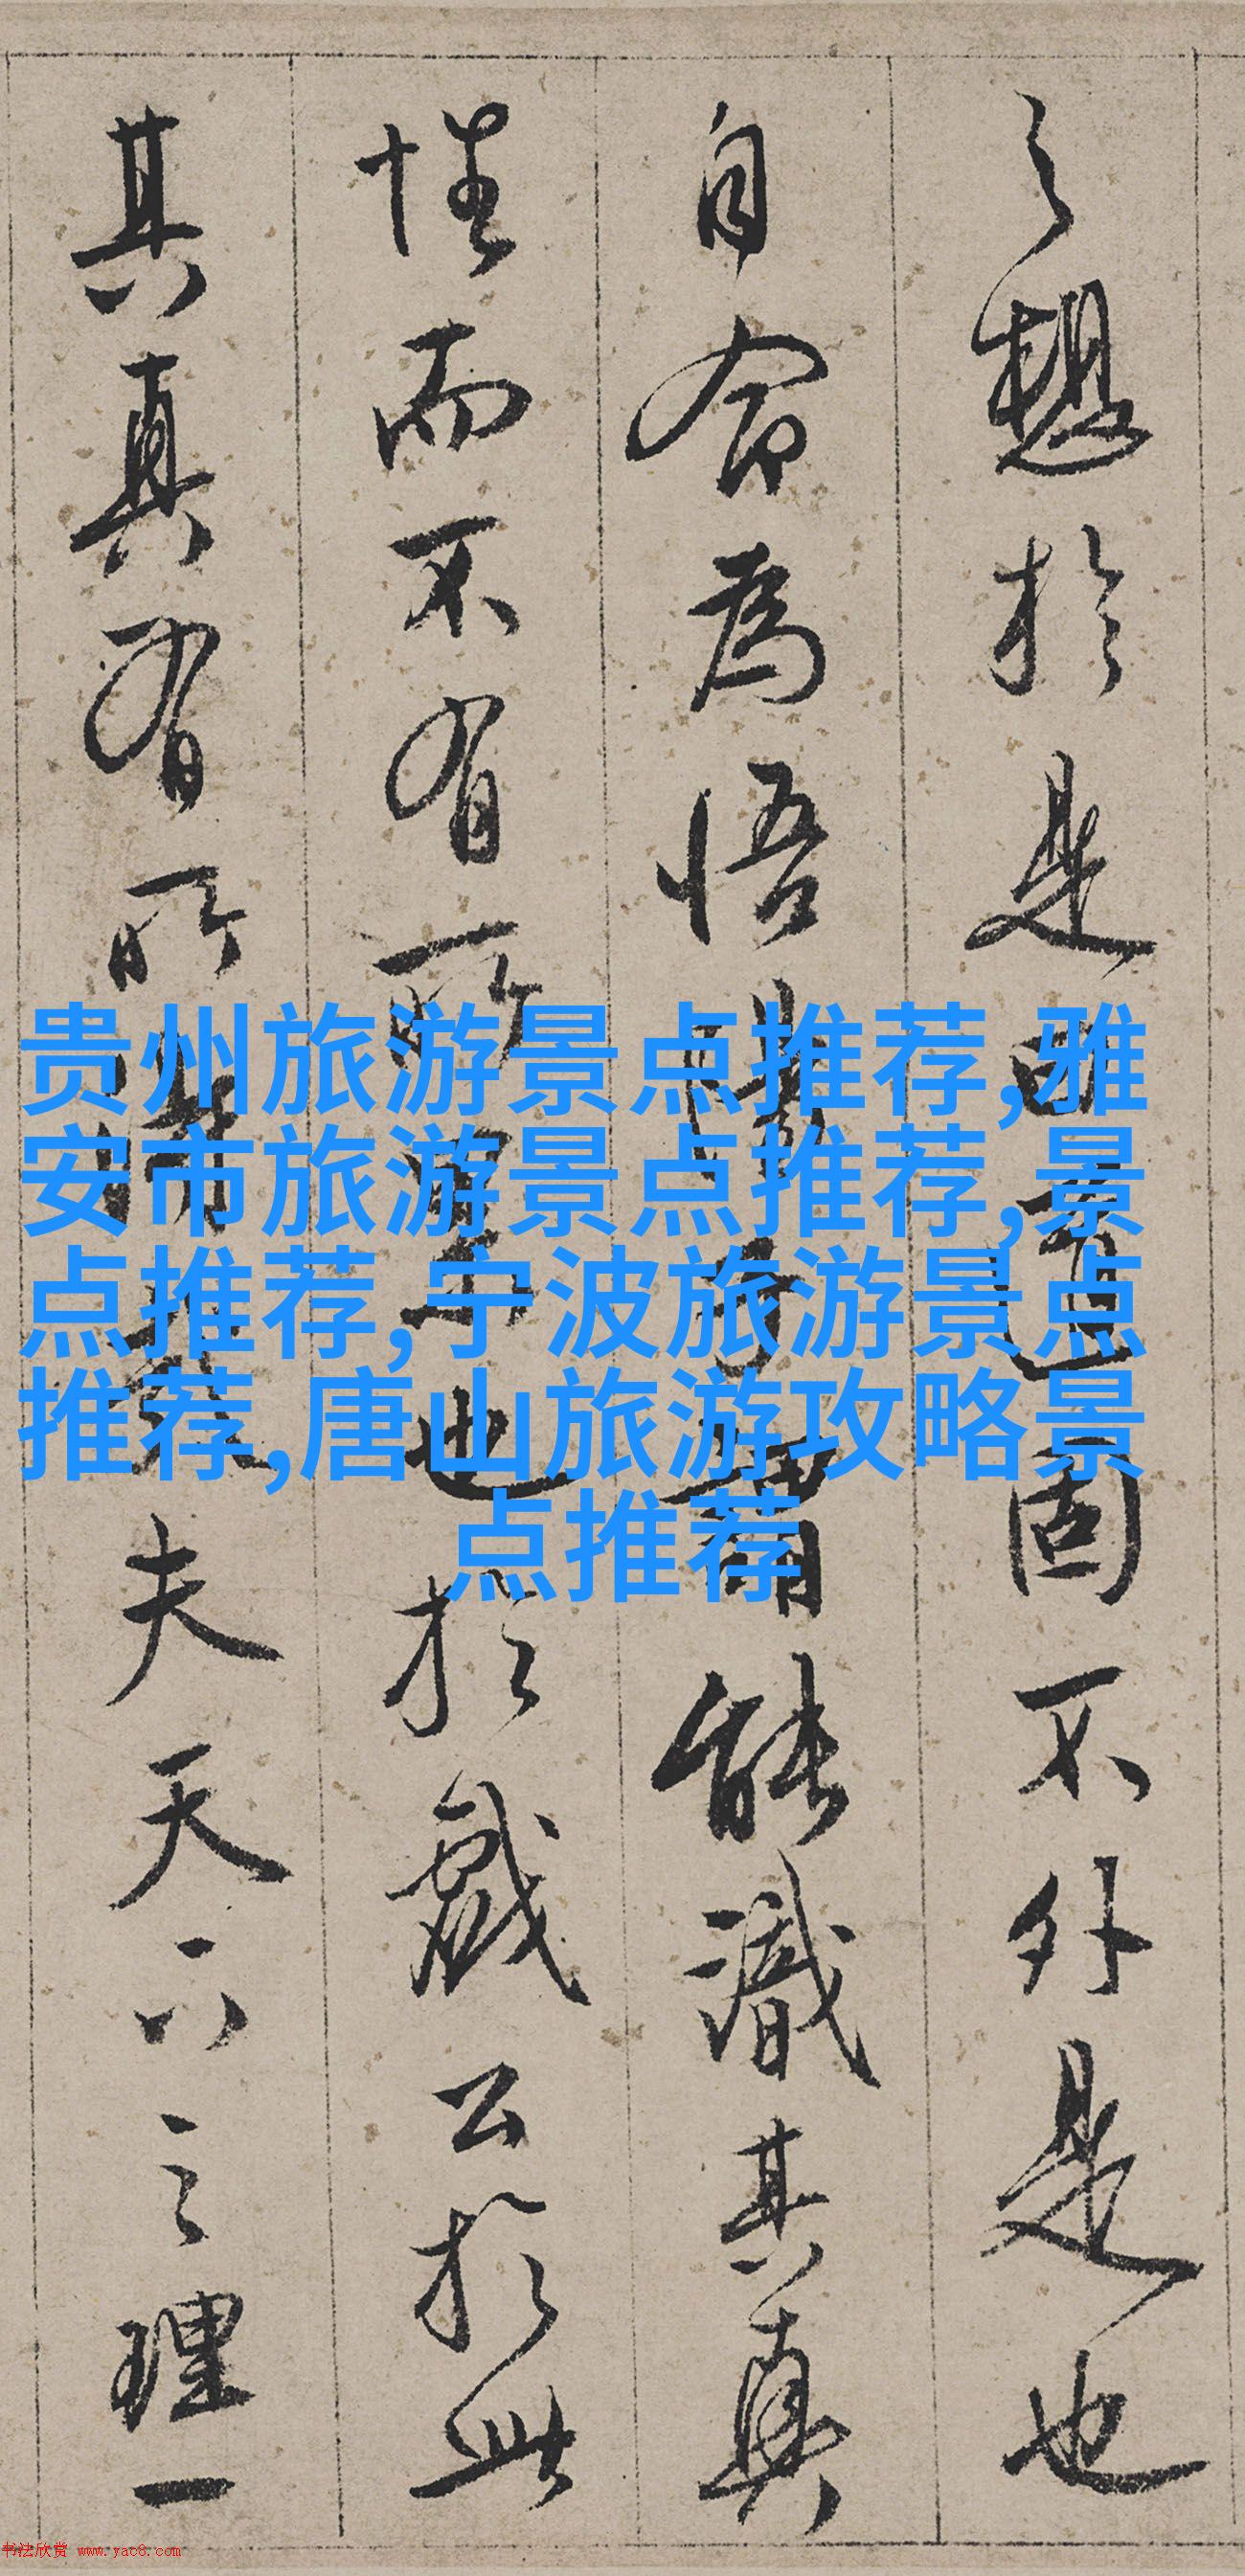 之想於是固不外是也
自命为悟能識其真
性而不有所也於戲公於此
其真有所夫天下之理一
贵州旅游景点推荐,雅
安市旅游景点推荐,景
点推荐,宁波旅游景点
推荐,唐山旅游攻略景
点推荐
书法欣赏 www.yac8.com